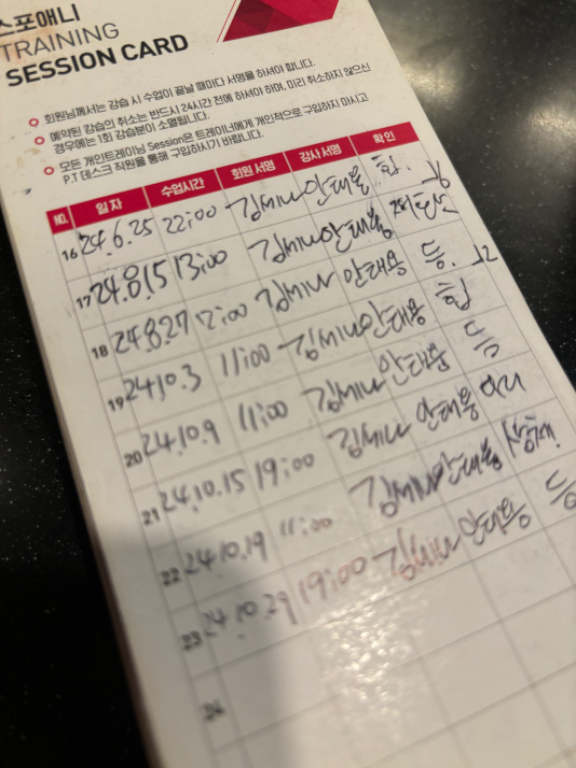 스포애니
TRAINING
SESSION CARD
회원님께서는 강습 시 수업이 끝날 때마다 서명을 하셔야 합니다.
예약된 강습의 취소는 반드시 24시간 전에 하셔야 하며, 미리 취소하지 않으신
경우에는 1회 강습분이 소멸됩니다.
모든 개인트레이닝 Session은 트레이너에게 개인적으로 구입하지 마시고
P.T 데스크 직원을 통해 구입하시기 바랍니다.
NO. 일 자 수업시간 회원 서명 강사 서명 확 인
16 24.6.25 22:00 김세나 안태용
17 24.8.15 13:00 김세나 안태용
18 24.8.27 12:00 김세나 안태용 등.
19 24.10.3 11:00 김세나 안태용
20 24.10.9 11:00 김세나 안태용 등
21 24.10.15 19:00 김세나 안태용
22 24.10.19 11:00 김세나 안태용
23 24.10.29 19:00 김세나 안태용 등
24